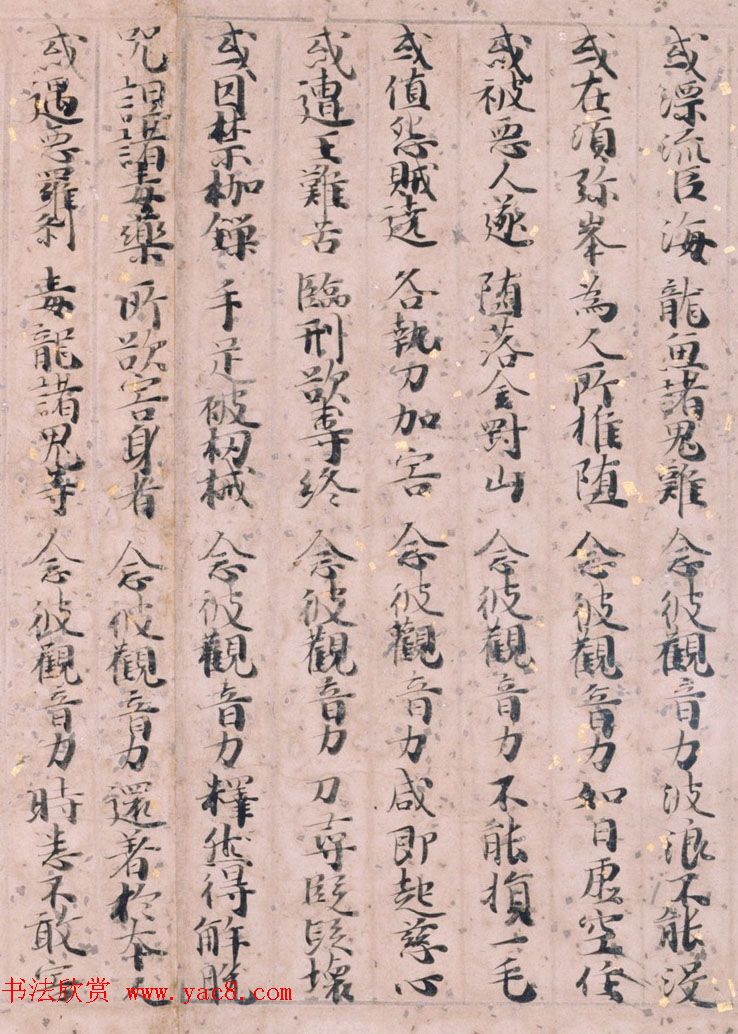 或漂流巨海 龍魚諸鬼難 念彼觀音力 波浪不能没
或在須弥峯 為人所推堕 念彼觀音力 如日虚空住
或被悪人逐 堕落金剛山 念彼觀音力 不能損一毛
或值怨賊遶 各執刀加害 念彼觀音力 咸即起慈心
或遭王難苦 臨刑欲壽終 念彼觀音力 刀尋段段壞
或囚禁枷鎖 手足被杻械 念彼觀音力 釋然得解脱
咒詛諸毒藥 所欲害身者 念彼觀音力 還著於本人
或遇悪羅刹 毒龍諸鬼等 念彼觀音力 時悉不敢害
书法欣赏 www.yac8.com